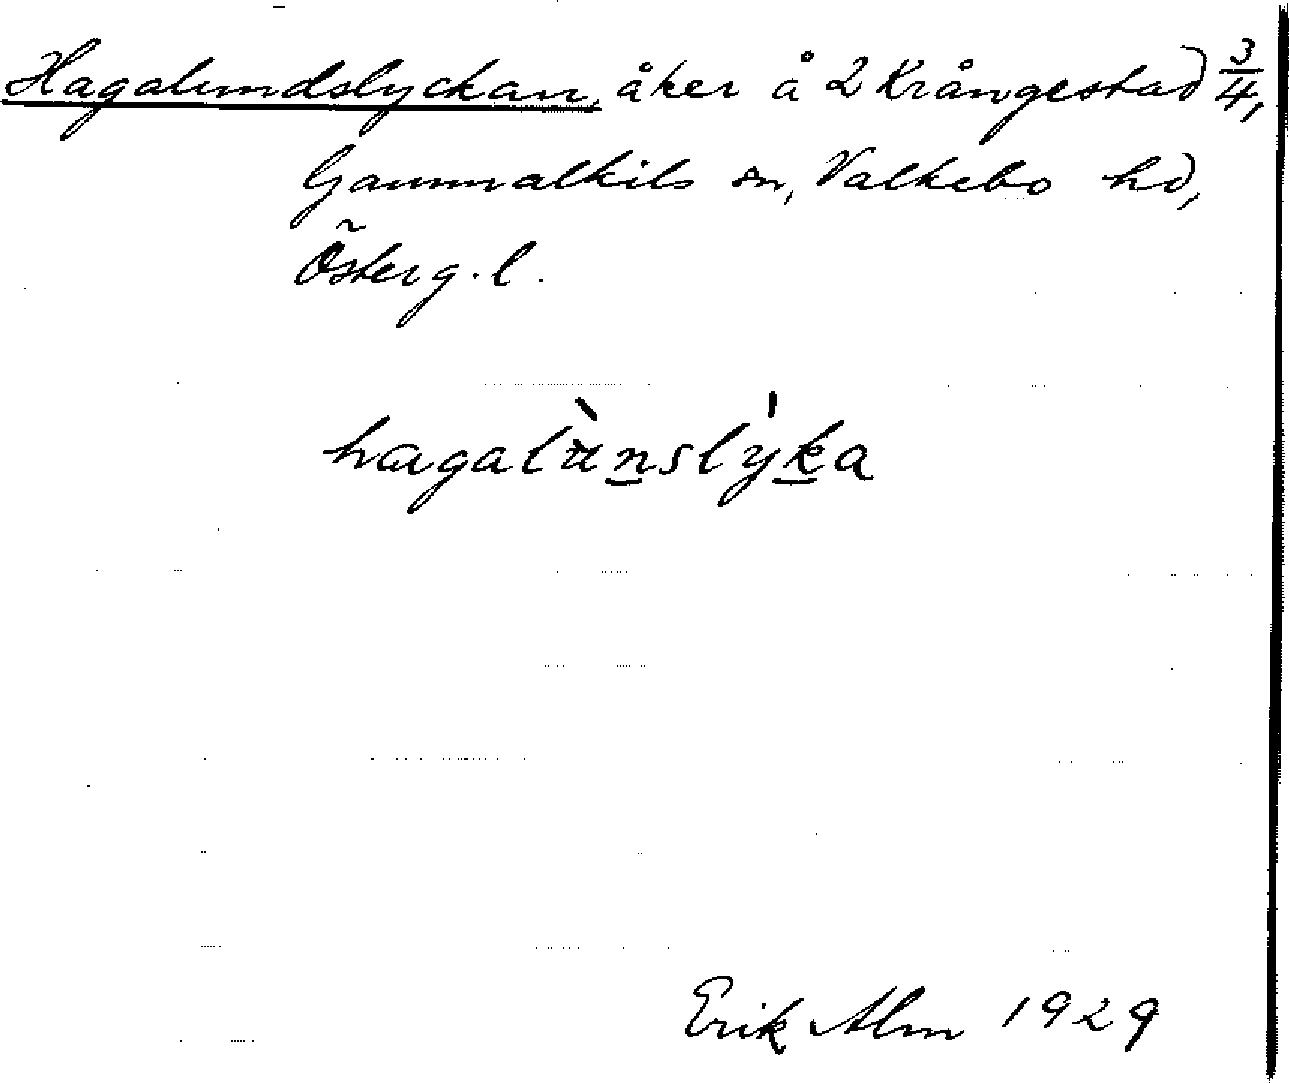 Hagalundslyckan, åker å 2 Krångestad 3/4,
Gammalkils sn, Valkebo hd,
Österg.l.
hagalùnslýka
Erik Alm 1929